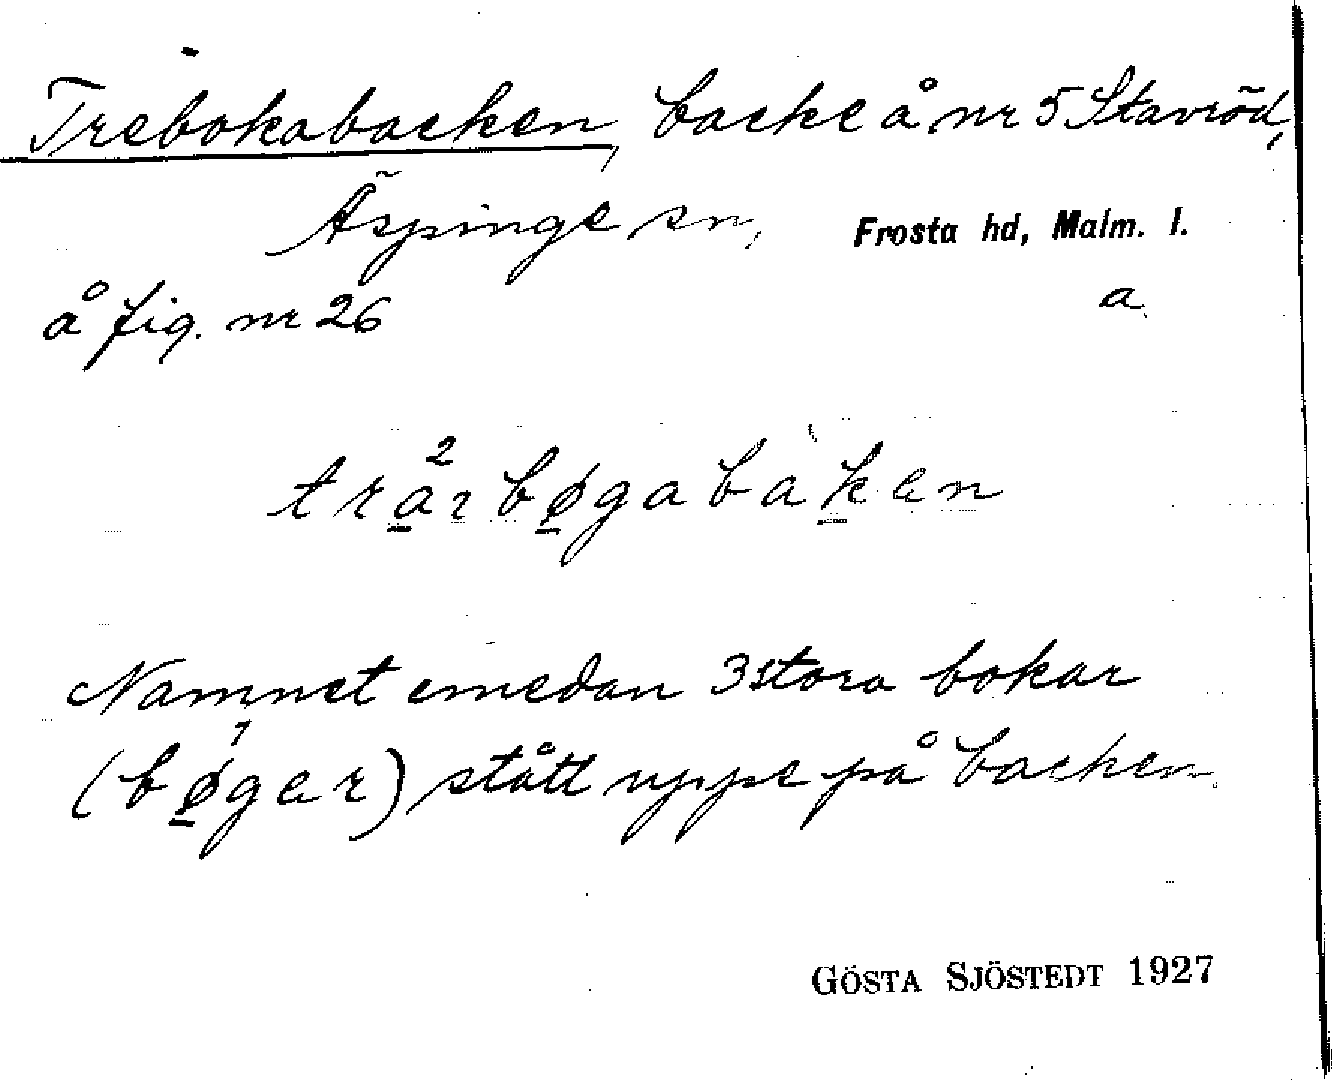 Trebokabacken, backe å nr 5 Stavröd,
Äspinge sn, Frosta hd, Malm. l.
å fig. nr 26 a.
tra²rbøgabaken
Namnet emedan 3 stora bokar
(bø¹ger) stått uppe på backen.
GÖSTA SJÖSTEDT 1927